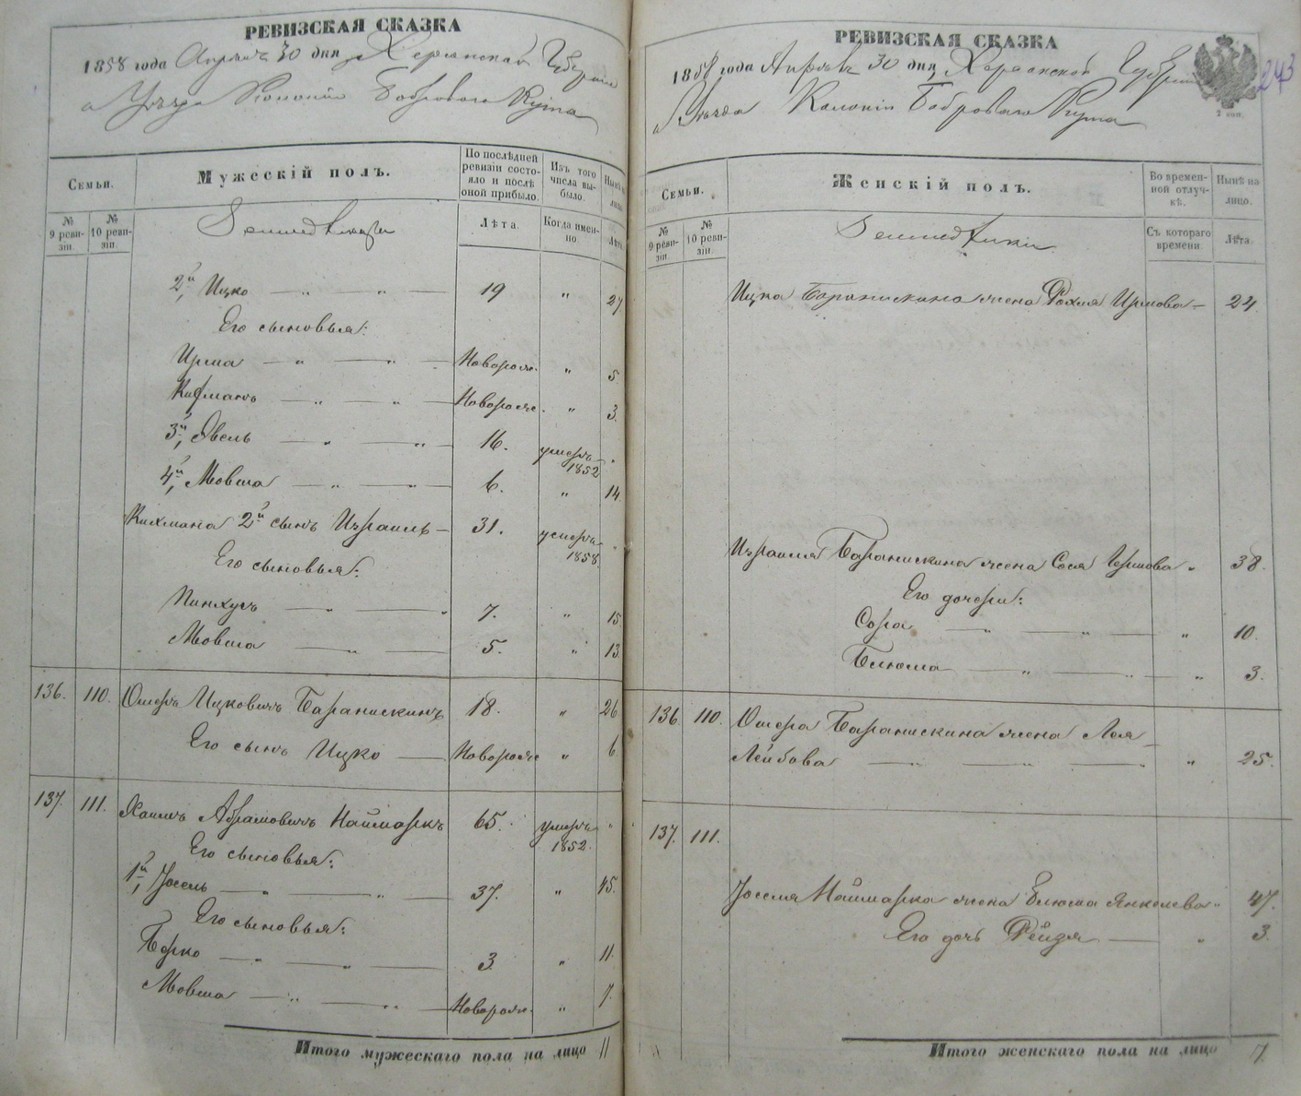 РЕВИЗСКАЯ СКАЗКА
1858 года Апрѣля 30 дня Херсонской Губерніи
и Уѣзда Колоніи Бобровый Кутъ
Семьи.
Мужескій полъ.
По послѣдней ревизіи состояло и послѣ оной прибыло.
Изъ того числа выбыло.
Нынѣ на лицо.
№ 9 ревизіи.
№ 10 ревизіи.
Земледѣльцы
Лѣта.
Когда именно.
Лѣта.
2й, Ицко — „ — „ — 19 „ 27
Его сыновья:
Ирма — „ — „ — Новорож. „ 5.
Кифманъ — „ — „ — Новорож. „ 3.
3й, Явель — „ — „ — 16. умеръ 1852 „
4й, Мовша — „ — „ — 6. „ 14
Кихмана 2й сынъ Израиль — 31. умеръ 1858. „
Его сыновья:
Пинхусъ — „ — „ 7. „ 15
Мовша — „ — 5. „ 13
136. 110. Ошеръ Ицковичъ Баранискинъ 18. „ 26
Его сынъ Ицко — Новорож „ 6
137. 111. Хаимъ Абрамовичъ Наймаркъ 65. умеръ 1852. „
Его сыновья:
1й, Іосель — „ — „ — 37. „ 45.
Его сыновья:
Берко — „ — „ — 3 „ 11.
Мовша — „ — „ — Новорож. „ 7.
Итого мужескаго пола на лицо 11
РЕВИЗСКАЯ СКАЗКА
243
1858 года Апрѣля 30 дня, Херсонской Губерніи
и Уѣзда Колоніи Бобровый Кутъ
Семьи.
Женскій полъ.
Во временной отлучкѣ.
Нынѣ на лицо.
№ 9 ревизіи.
№ 10 ревизіи.
Земледѣльцы
Съ котораго времени.
Лѣта.
Ицка Баранискина жена Рохля Ирмова — 24
Израиля Баранискина жена Сося „ 38.
Его дочери:
Сора — „ — „ — „ 10.
Блюма — „ — „ — „ 3.
136 110. Ошера Баранискина жена Лея
Лейбова — „ — „ — „ 25.
137. 111.
Іоселя Наймарка жена Блюма Янкелева „ 47.
Его дочь Рейзя — „ 3.
Итого женскаго пола на лицо 7.